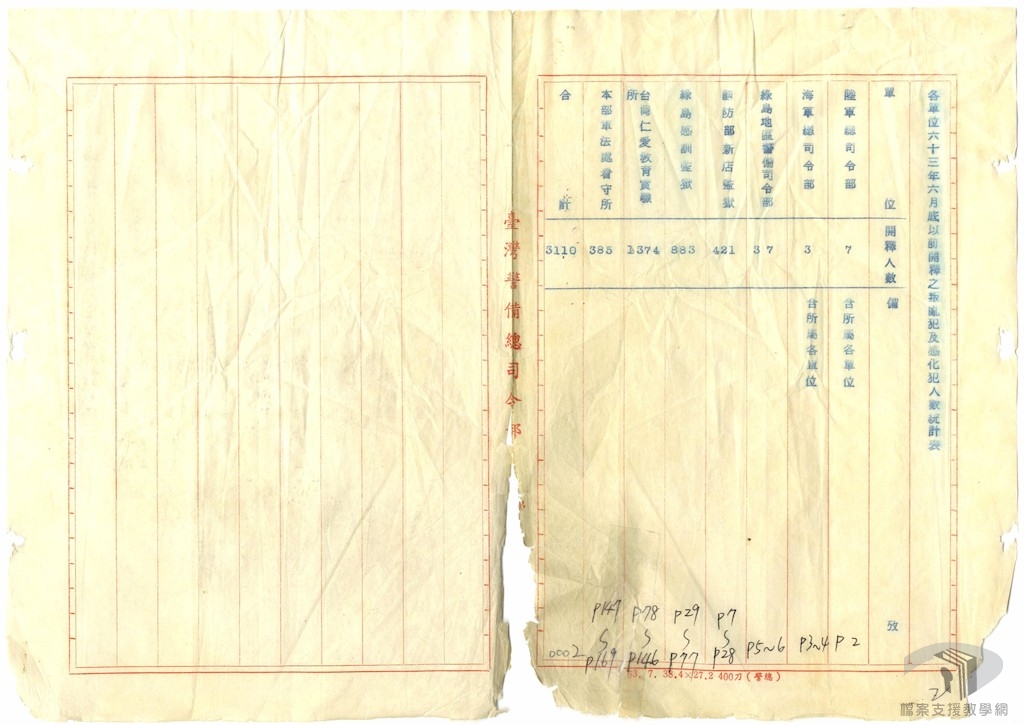 各單位六十三年六月底以前開釋之叛亂犯及感化犯人數統計表
單位 開釋人數 備攷
陸軍總司令部 7 含所屬各單位 P 2
海軍總司令部 3 含所屬各單位 P3~4
綠島地區警備司令部 37 P5~6
國防部新店監獄 421 P7~P28
綠島感訓監獄 883 P29~P77
台灣仁愛教育實驗所 1374 P78~P146
本部軍法處看守所 385 P147~P169
合計 3110
0002
臺灣警備總司令部
63. 7. 38.4×27.2 400刀(警總)
2
檔案支援教學網